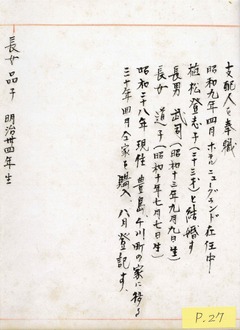 支配人を奉職
昭和九年四月ホテルニューグランド在任中
植松登志子(二十三才)と結婚す
長男 武司(昭和十三年九月九日生)
長女 道子(昭和十年七月七日生)
昭和二十八年現住 豊島 川町の家に移る
三十年四月全家を購入 八月登記す
長女 品子 明治卅四年生
P.27